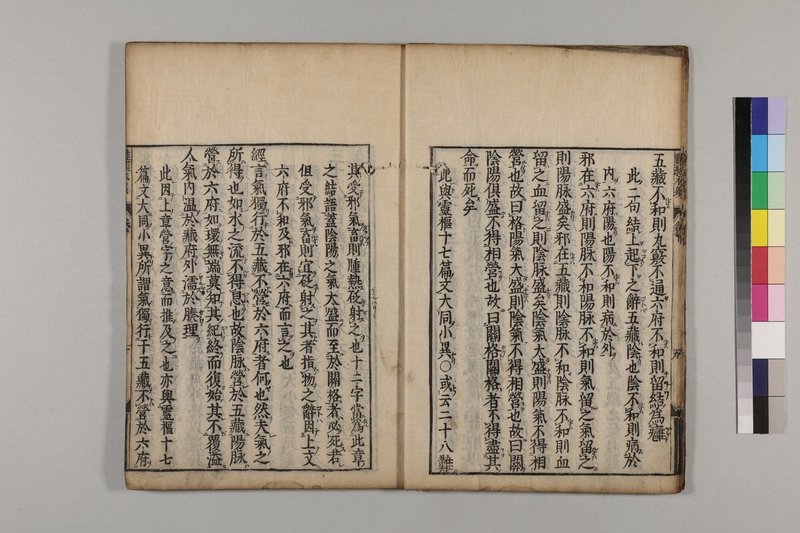 五藏不和則九竅不通六府不和則留結爲癰
此二句結上起下之辭五藏陰也陰不和則病於
內六府陽也陽不和則病於外
邪在六府則陽脉不和陽脉不和則氣留之氣留之
則陽脉盛矣邪在五藏則陰脉不和陰脉不和則血
留之血留之則陰脉盛矣陰氣太盛則陽氣不得相
營也故曰格陽氣太盛則陰氣不得相營也故曰關
陰陽俱盛不得相營也故曰關格關格者不得盡其
命而死矣
此與靈樞十七篇文大同小異○或云二十八難
其受邪氣畜則腫熱砭射之也十二字當爲此章
之結語蓋陰陽之氣太盛而至於關格者必死若
但受邪氣畜則宜砭射之其者指物之辭因上文
六府不和及邪在六府而言之也
經言氣獨行於五藏不營於六府者何也然夫氣之
所得也如水之流不得息也故陰脉營於五藏陽脉
營於六府如環無端莫知其紀終而復始其不覆溢
人氣內温於藏府外濡於腠理
此因上章營字之意而推及之也亦與靈樞十七
篇文大同小異所謂氣獨行于五藏不營於六府